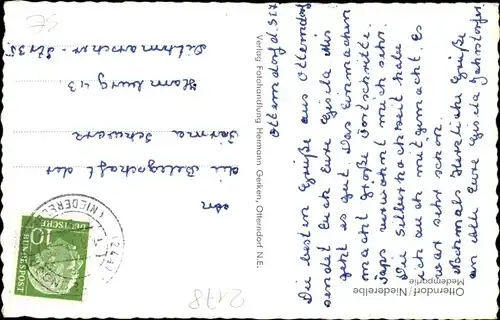 Otterndorf/Niederelbe
Medempartie
Otterndorf d. 5.7.
Die besten Grüße aus Otterndorf
sendet Euch Eure Gisela. Mir
geht es gut. Das Einmachen
macht große Fortschritte.
Paps verwöhnt mich sehr.
Die Silberhochzeit habe
ich auch mitgemacht. Es
war sehr schön.
Nochmals Herzliche Grüße
an alle Eure Gisela
Verlag Fotohandlung Hermann Gerken, Otterndorf N.E.
An
die Belegschaft der
Firma Schwarz
Hamburg 13
2178
10
DEUTSCHE
BUNDESPOST
(24a)
(NIEDERE